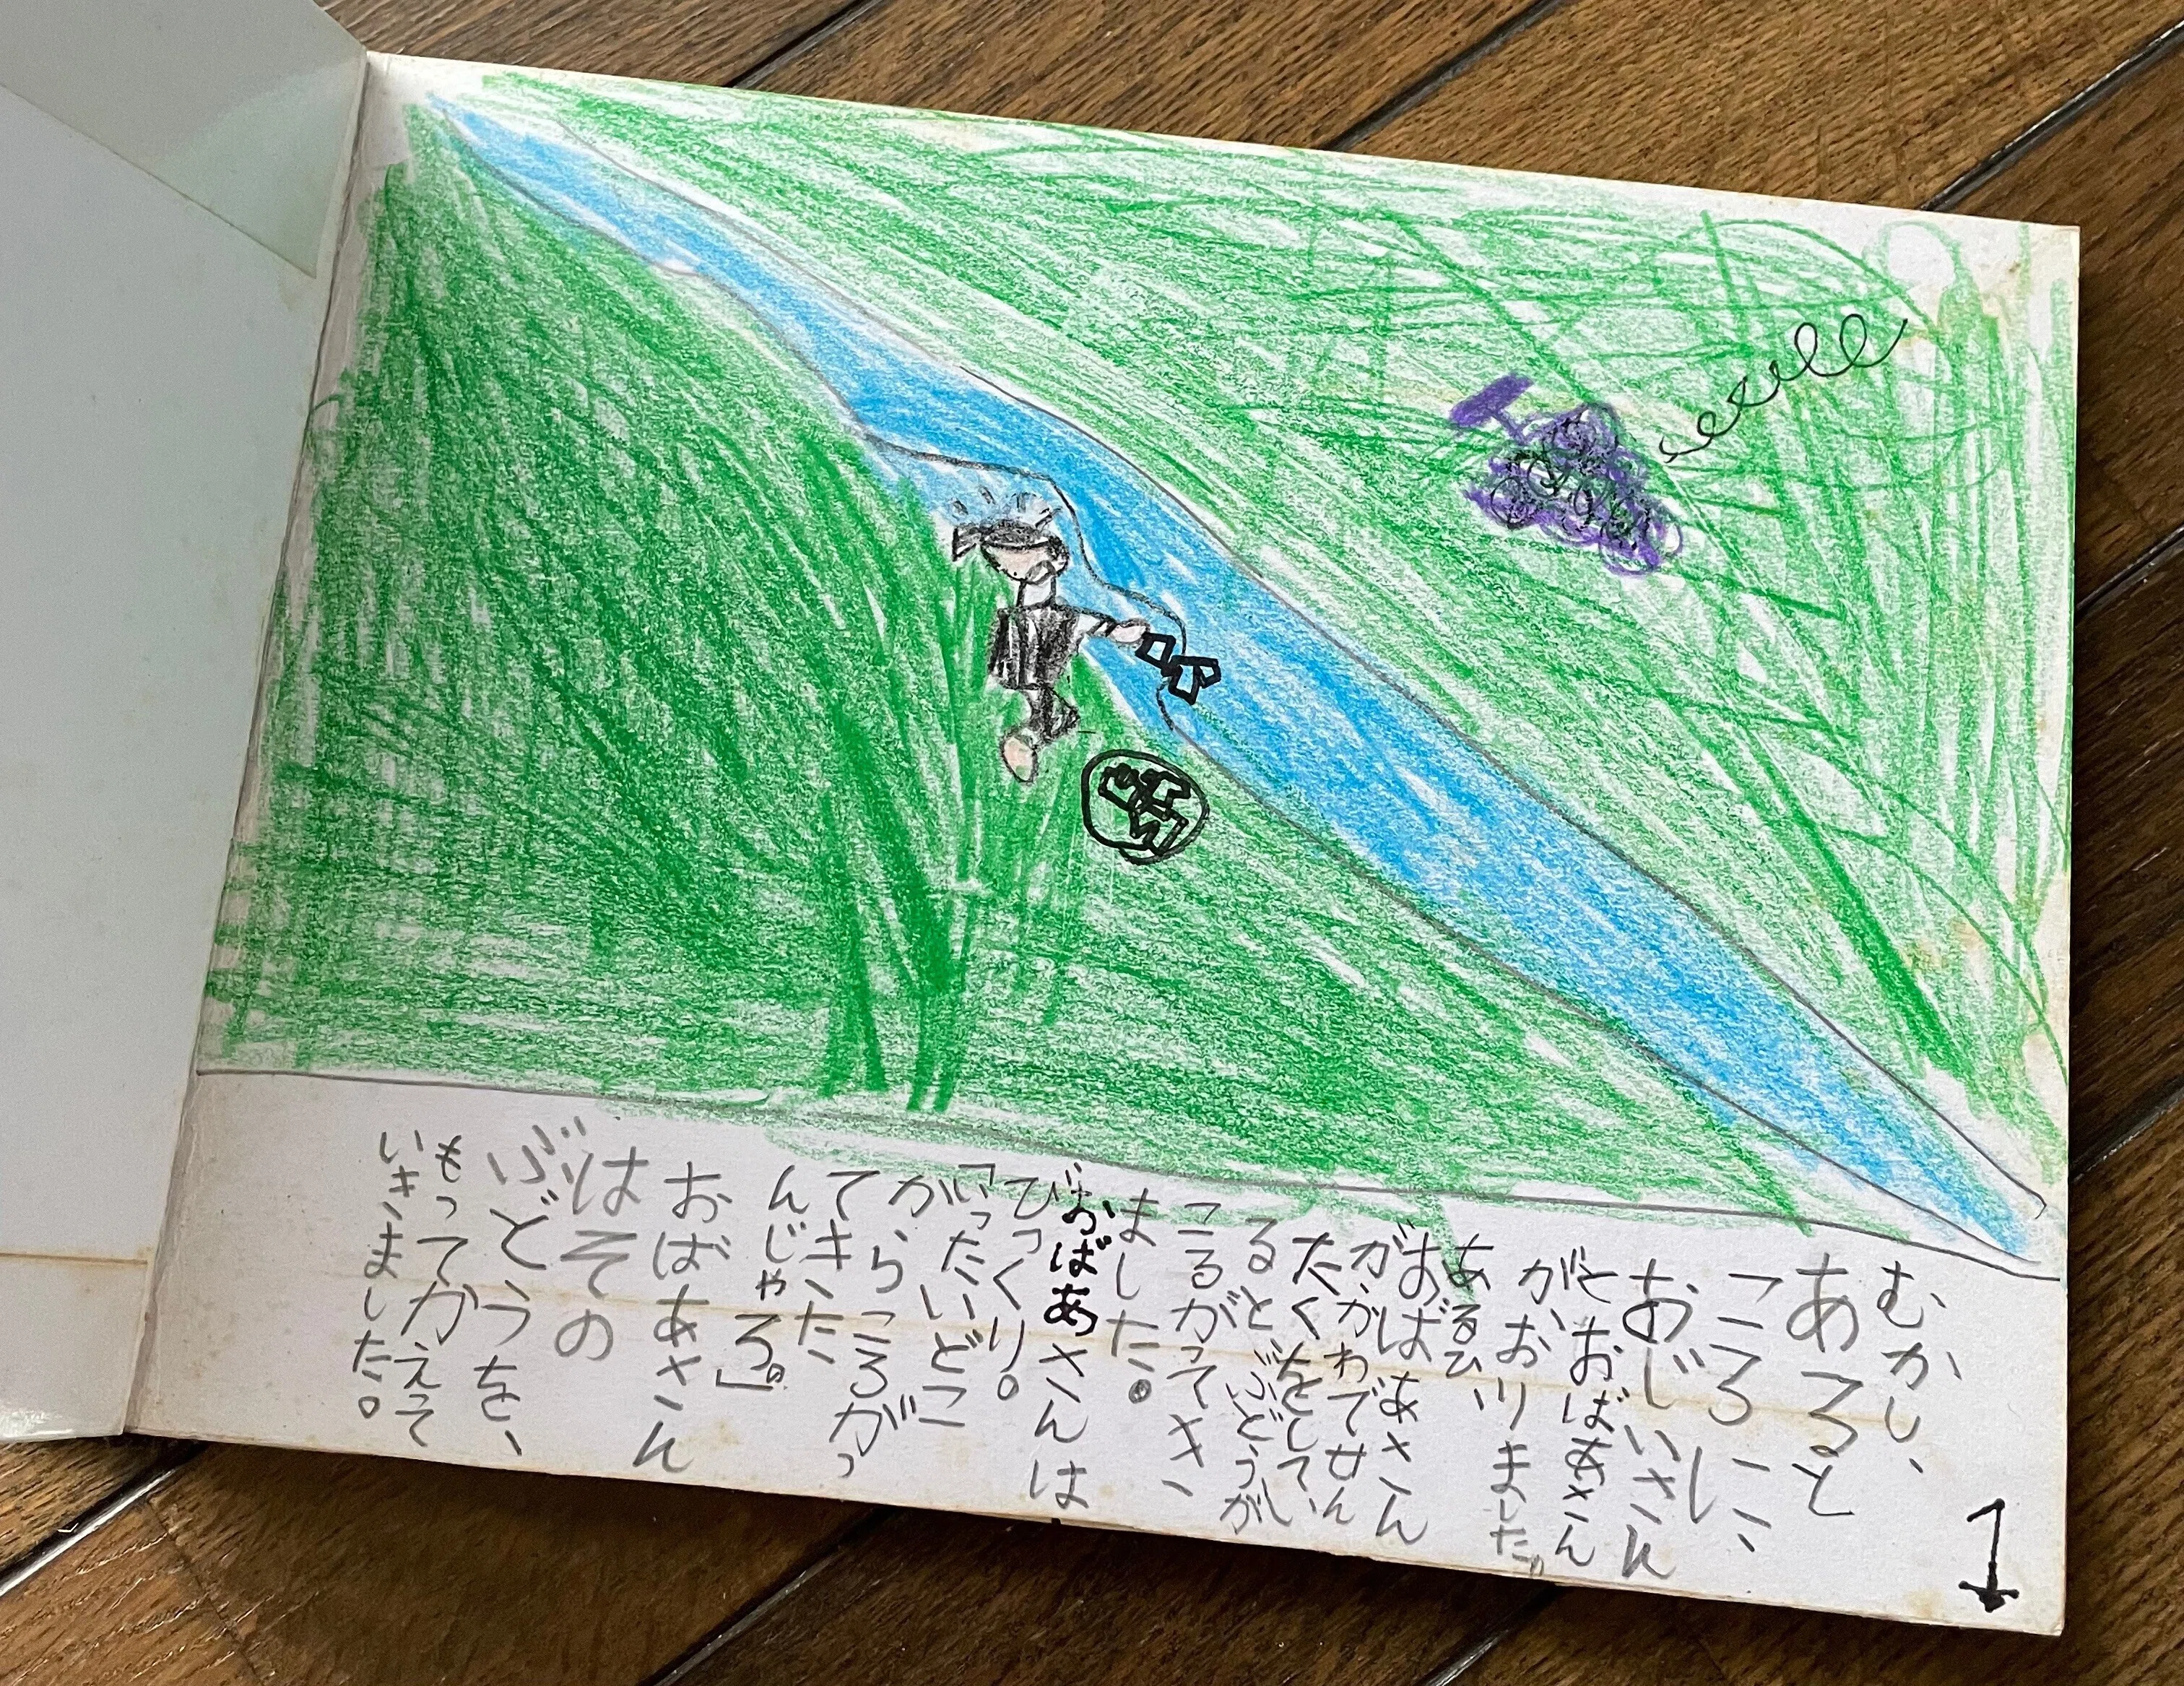 むかし、
あると
ころに、
おじいさん
とおばあさん
が、おりました。
あるひ、
おばあさん
が、かわでせん
たくをしてい
ると、ぶどうが
ころがってき
ました。
おばあさんは
びっくり。
「いったいどこ
からころがっ
てきた
んじゃろ。」
おばあさん
はその
ぶどうを、
もってかえって
いきました。
1